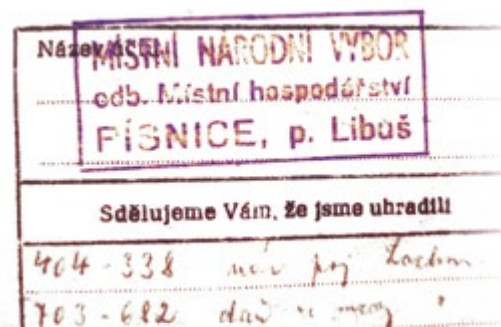 Název účtu
MÍSTNÍ NÁRODNÍ VÝBOR
odb. Místní hospodářství
PÍSNICE, p. Libuš
Sdělujeme Vám, že jsme uhradili
404-338
703-682